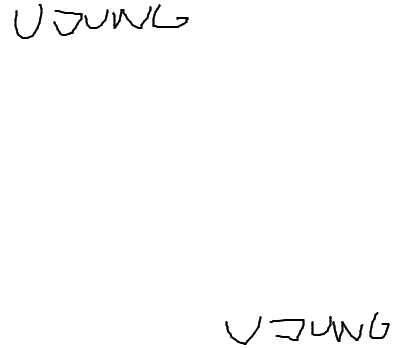 UJUNG
UJUNG